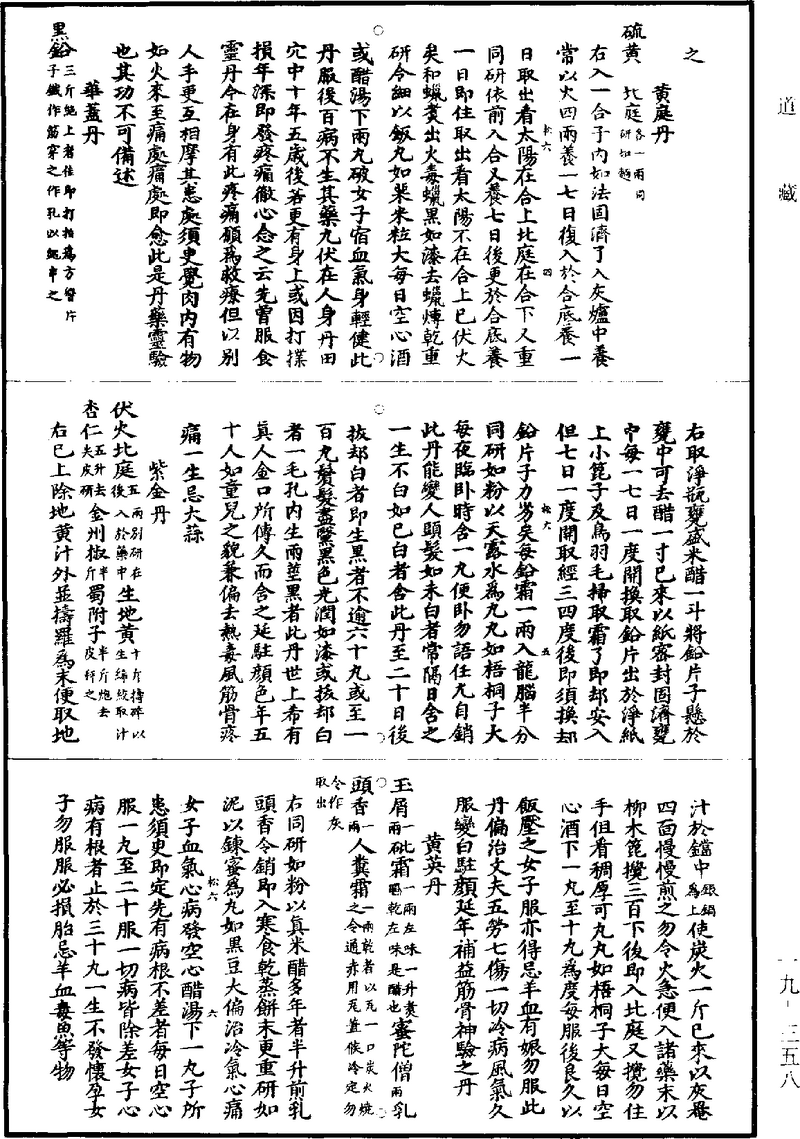 道藏
一九-三五八
之
黄庭丹
硫黄 北庭各一兩同研如麪
右入一合子内如法固濟了入灰爐中養
常以火四兩養一七日復入於合底養一
日取出看太陽在合上北庭在合下又重
同研依前入合又養七日後更於合底養
一日即住取出看太陽不在合上已伏火
矣和蠟煑出火毒蠟黑如漆去蠟煿乾重
研令細以飯丸如粟米粒大每日空心酒
或醋湯下兩丸破女子宿血氣身輕健此
丹服後百病不生其藥九伏在人身丹田
穴中十年五歲後若更有身上或因打撲
損年深即發疼痛徹心念之云先曾服食
靈丹今在身有此疼痛願爲救療但以别
人手更互相摩其患處須臾覺肉内有物
如火來至痛處痛處即愈此是丹藥靈驗
也其功不可備述
華蓋丹
黑鉛三斤絶上者佳即打拍爲方響片子鐵作筯穿之作孔以繩串之
松六 四
右取淨瓶甕盛米醋一斗將鉛片子懸於
甕中可去醋一寸已來以紙密封固濟甕
中每一七日一度開換取鉛片出於淨紙
上小篦子及鳥羽毛掃取霜了即却安入
但七日一度開取經三四度後即須換却
鉛片子力劣矣每鉛霜一兩入龍腦半分
同研如粉以天露水爲丸丸如梧桐子大
每夜臨卧時含一丸便卧勿語任丸自銷
此丹能變人頭髮如未白者常隔日含之
一生不白如已白者含此丹至二十日後
拔却白者即生黑者不逾六十丸或至一
百丸鬢髮盡黳黑色光潤如漆或拔却白
者一毛孔内生兩莖黑者此丹世上希有
真人金口所傳久而含之延駐顔色年五
十人如童兒之貌兼偏去熱毒風筋骨疼
痛一生忌大蒜
紫金丹
伏火北庭五兩别研在後入於藥中 生地黄十斤擣碎以生絹絞取汁
杏仁五升去尖皮研 金州椒半斤 蜀附子半斤炮去皮秤之
右已上除地黄汁外並擣羅爲末便取地
松六 五
汁於鐺中銀鍋爲上使炭火一斤已來以灰罨
四面慢慢煎之勿令火急便入諸藥末以
柳木篦攪三百下後即入北庭又攪勿住
手但看稠厚可丸丸如梧桐子大每日空
心酒下一丸至十九爲度每服後良久以
飯壓之女子服亦得忌羊血有娠勿服此
丹偏治丈夫五勞七傷一切冷病風氣久
服變白駐顔延年補益筋骨神驗之丹
黄英丹
玉屑一兩 砒霜一兩左味一升煑乾左味是醋也 蜜陀僧一兩 乳
頭香一兩 人糞霜一兩乾者以瓦一口炭火燒之令通赤用瓦蓋候冷定勿令作灰取出
右同研如粉以真米醋多年者半升前乳
頭香令銷即入寒食乾蒸餅末更重研如
泥以鍊蜜爲丸如黑豆大偏治冷氣心痛
女子血氣心病發空心醋湯下一丸子所
患須臾即定先有病根不差者每日空心
服一丸至二十服一切病皆除差女子心
病有根者止於三十丸一生不發懷孕女
子勿服服必損胎忌羊血毒魚等物
松六 六